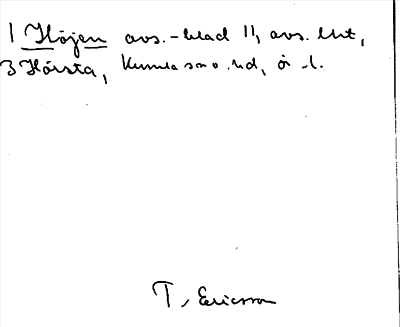 1 Höjen avs.-blad 11, avs. tht,
3 Hörsta, Kumla sn o. hd, ör. l.
T. Ericsson